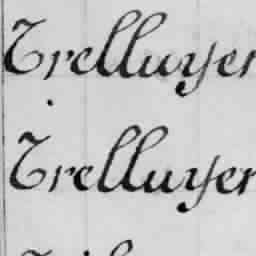 Trelluyer
Trelluyer